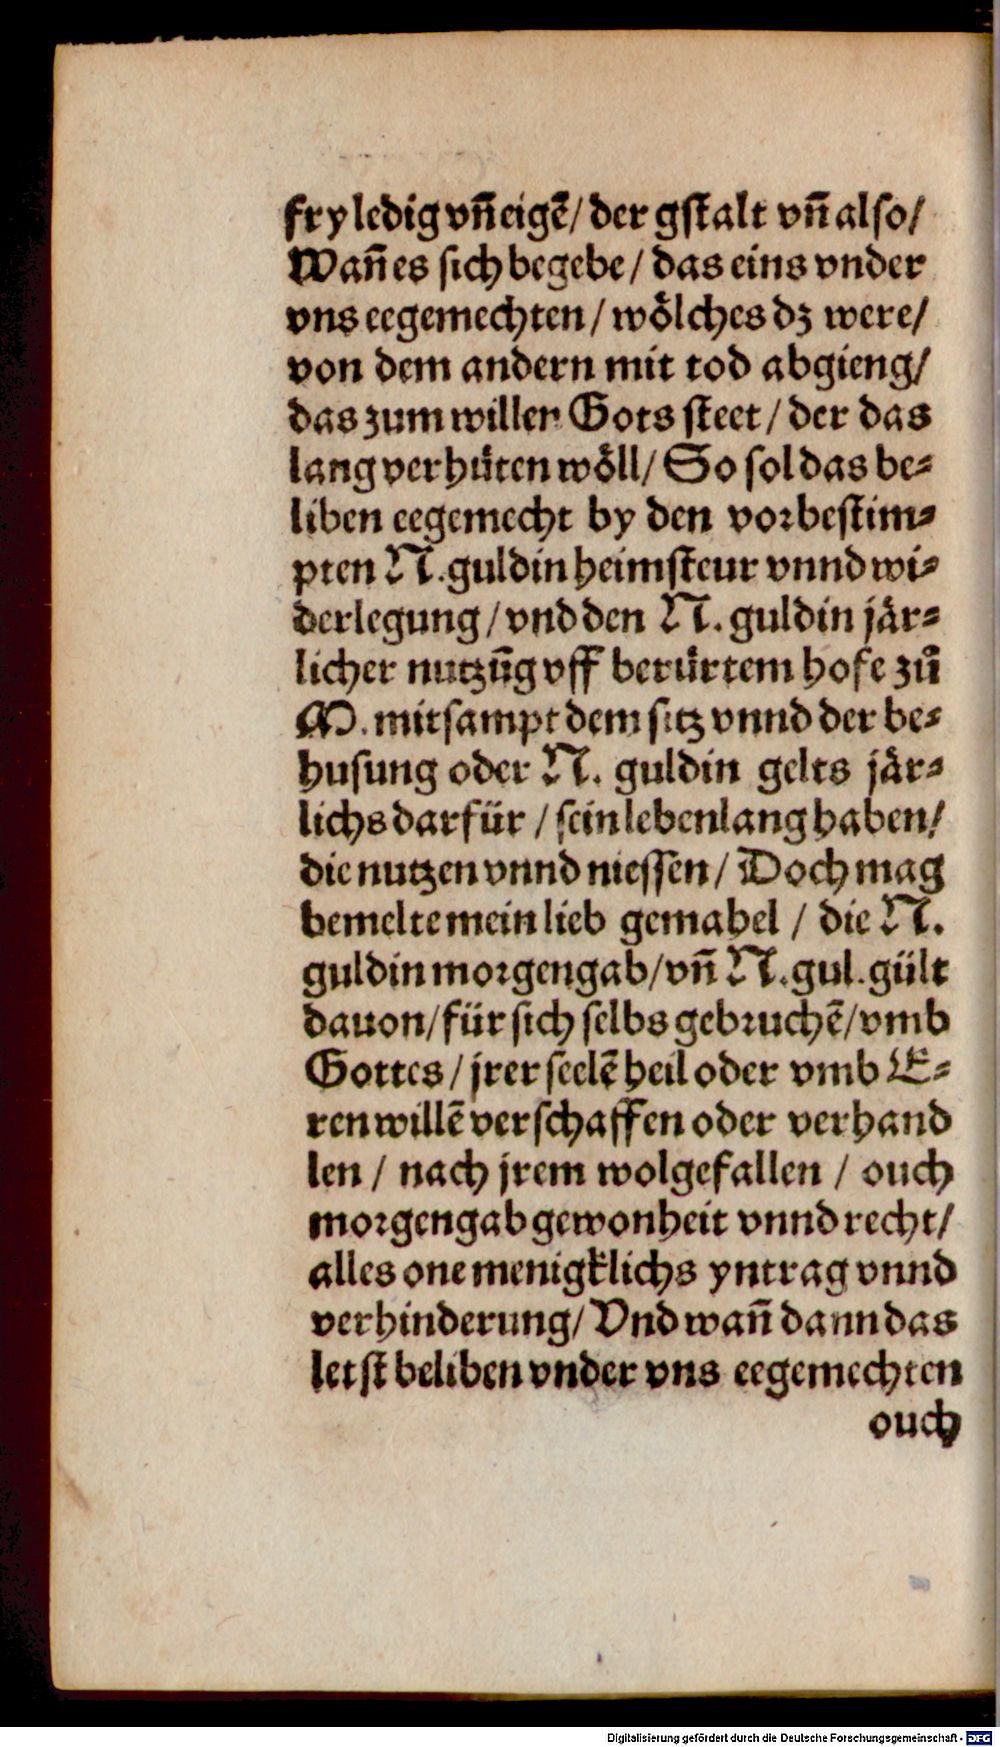 fry ledig vñ eigẽ / der gstalt vñ also /
Wañ es sich begebe / das eins vnder
vns eegemechten / woͤlches dz were /
von dem andern mit tod abgieng /
das zum willen Gots steet / der das
lang verhuͤten woͤll / So sol das be⸗
liben eegemecht by den vorbestim⸗
pten N. guldin heimsteur vnnd wi⸗
derlegung / vnd den N. guldin jaͤr⸗
licher nutzũg vff beruͤrtem hofe zuͦ
M. mitsampt dem sitz vnnd der be⸗
husung oder N. guldin gelts jaͤr⸗
lichs darfuͤr / sein lebenlang haben /
die nutzen vnnd niessen / Doch mag
bemelte mein lieb gemahel / die N.
guldin morgengab / vñ N. gul. guͤlt
dauon / fuͤr sich selbs gebruchẽ / vmb
Gottes / jrer seelẽ heil oder vmb E⸗
ren willẽ verschaffen oder verhand
len / nach jrem wolgefallen / ouch
morgengab gewonheit vnnd recht /
alles one menigklichs yntrag vnnd
verhinderung / Vnd wañ dann das
letst beliben vnder vns eegemechten
ouch
Digitalisierung gefördert durch die Deutsche Forschungsgemeinschaft - DFG